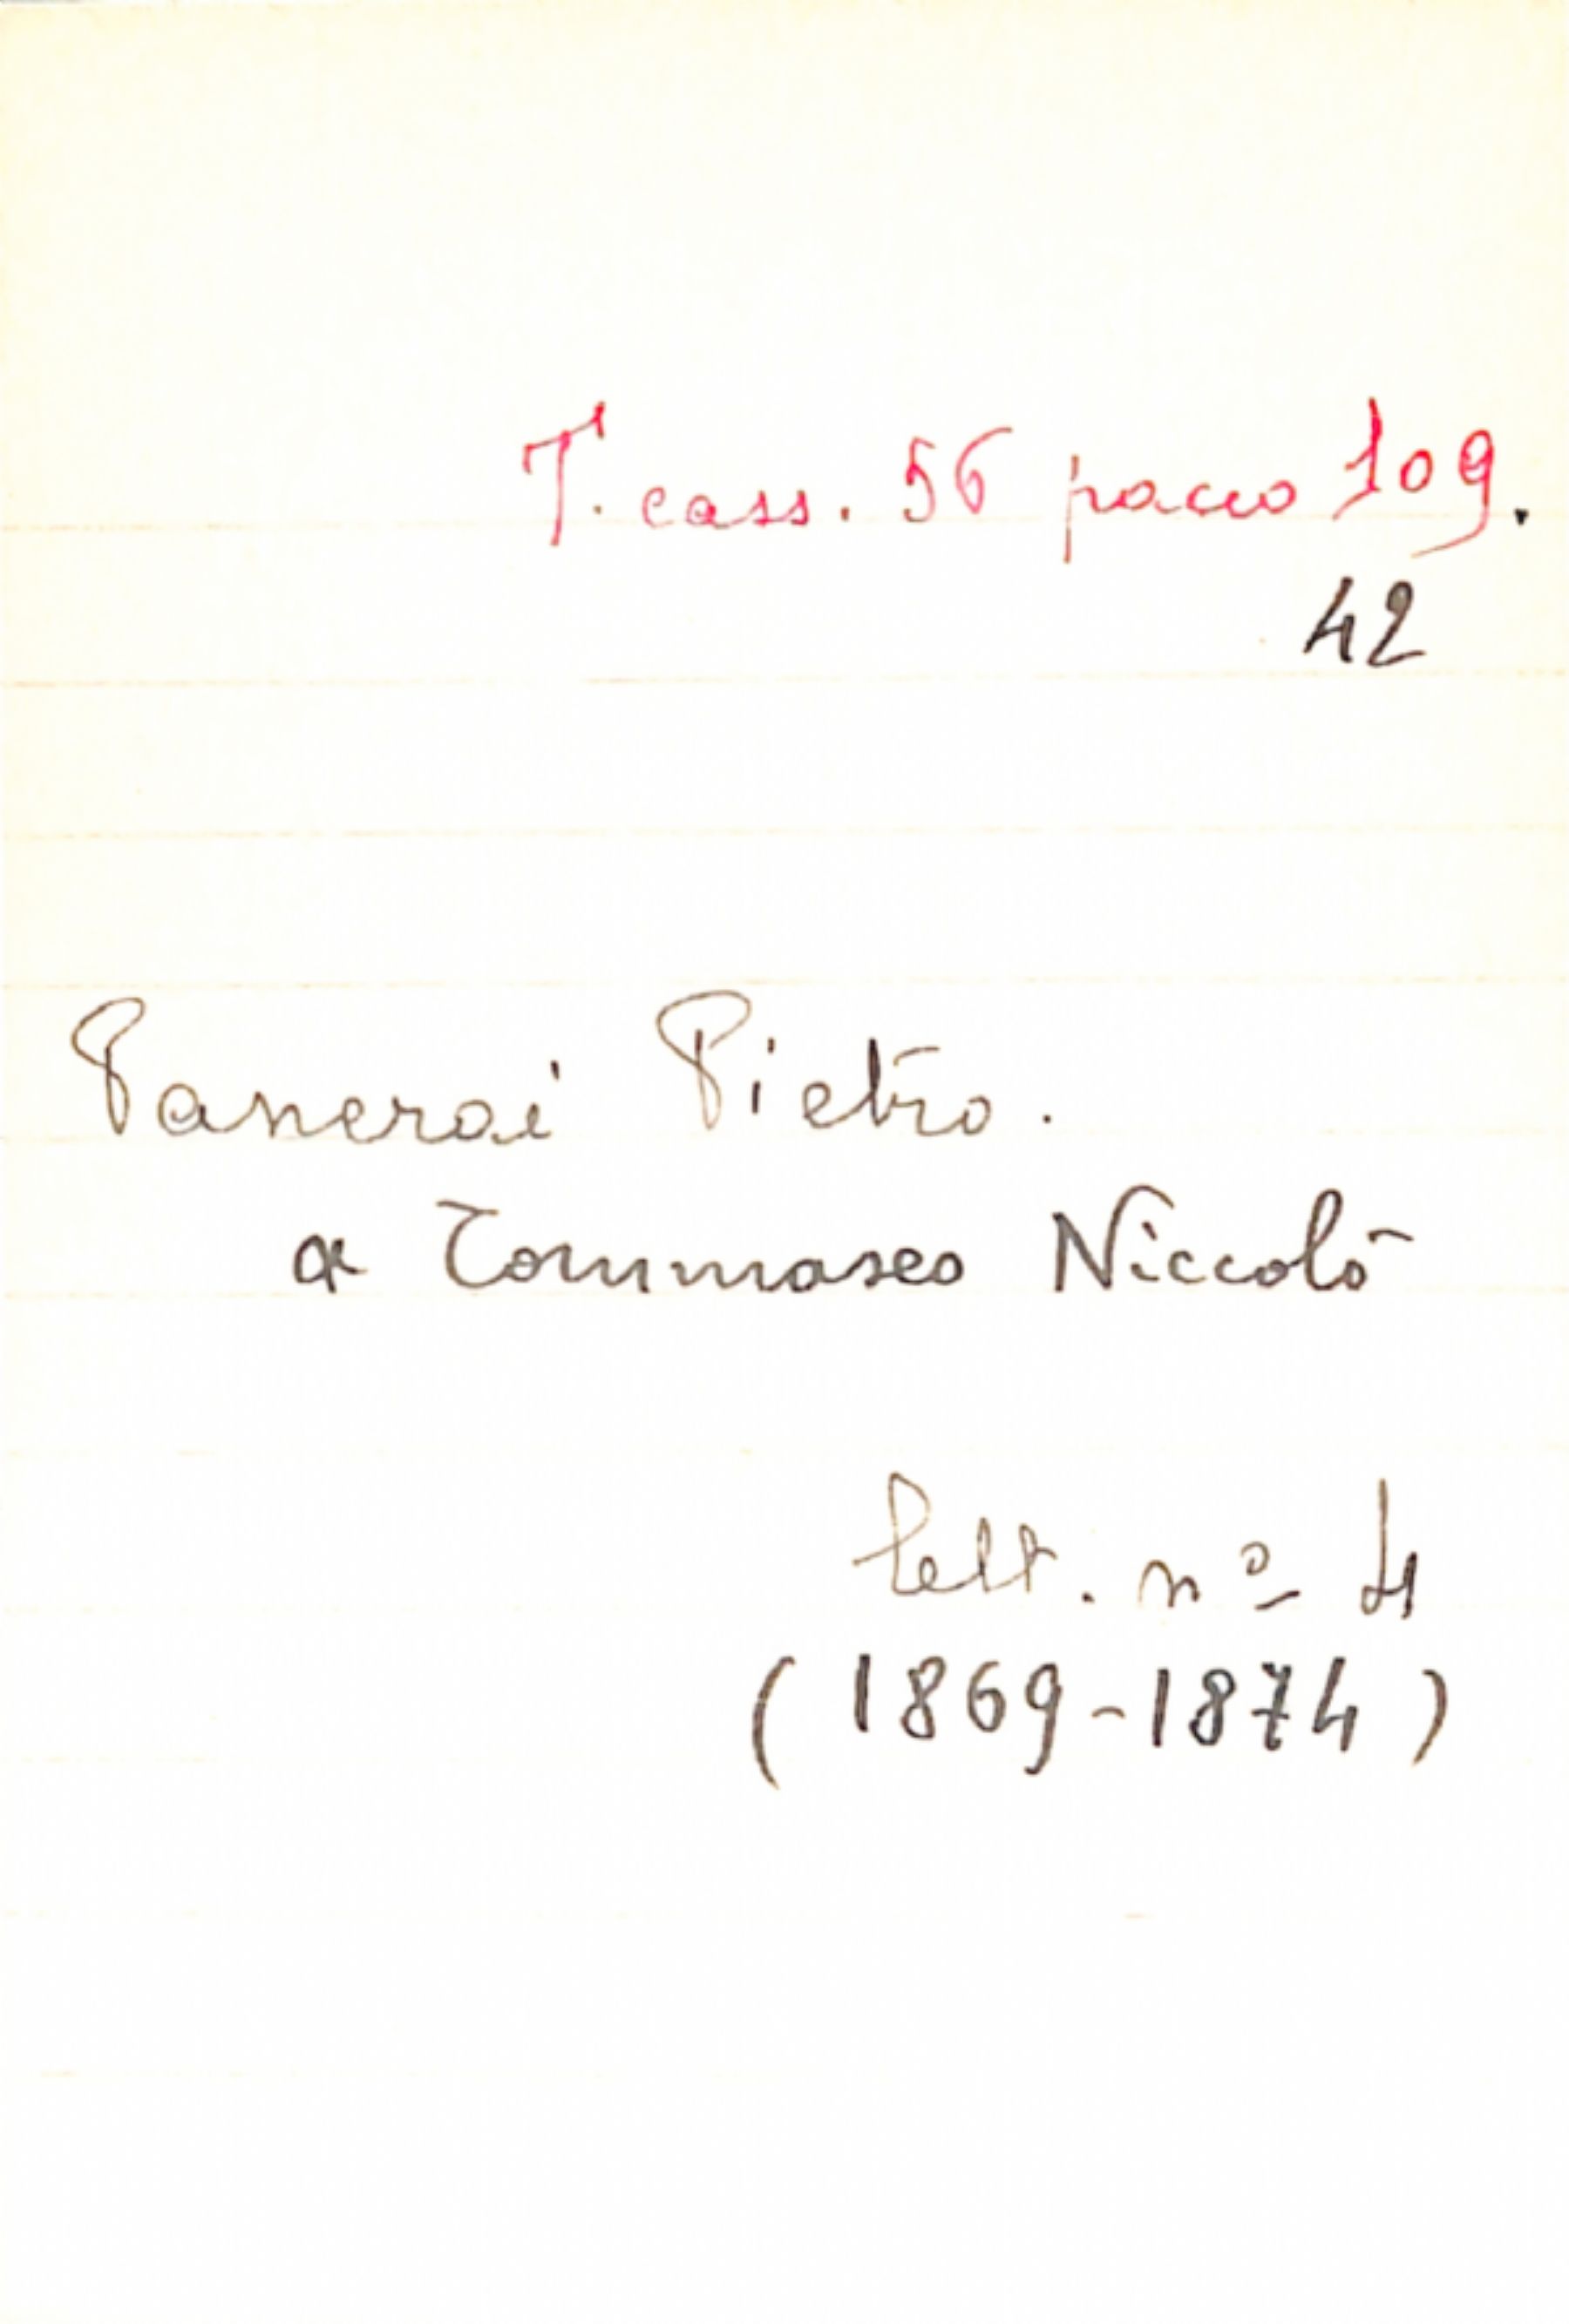 T. cass. 56 pacco 109.
42
Panerai Pietro.
a Tommaseo Niccolò
lett. nº 4
(1869-1874)